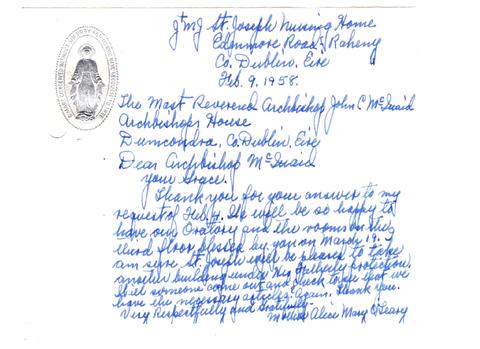 J.M.J. St. Joseph Nursing Home
Edenmore Road, Raheny
Co. Dublin, Eire
Feb. 9, 1958.
The Most Reverend Archbishop John C McQuaid
Archbishops House
Dumcondra, Co. Dublin, Eire
Dear Archbishop McQuaid
your Grace.
Thank you for your answer to my
request of Feb. 4. We will be so happy to
have our Oratory and the rooms on the
third floor blessed by you on March 19. I
am sure St. Joseph will be pleased to take
another building under His protection.
will someone come out and check to see that we
have the necessary articles. Again, thank you.
Very Respectfully and Gratefully-
Mother Alice Mary O'Leary